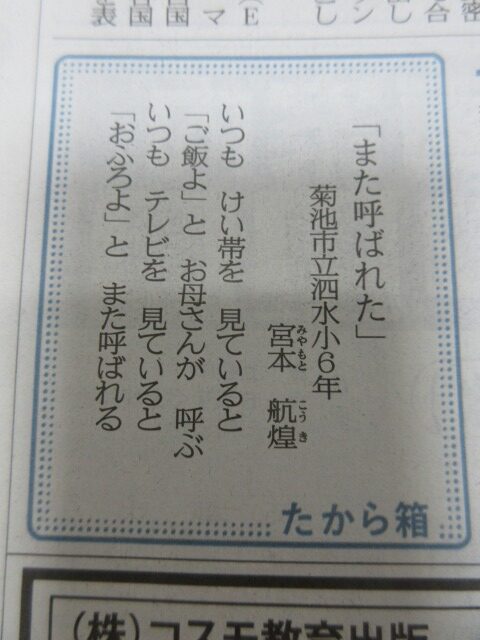 「また呼ばれた」
菊池市立泗水小6年
宮本 航煌
みやもと こうき
いつも けい帯を 見ていると
「ご飯よ」と お母さんが 呼ぶ
いつも テレビを 見ていると
「おふろよ」と また呼ばれる
たから箱
(株)コスモ教育出版